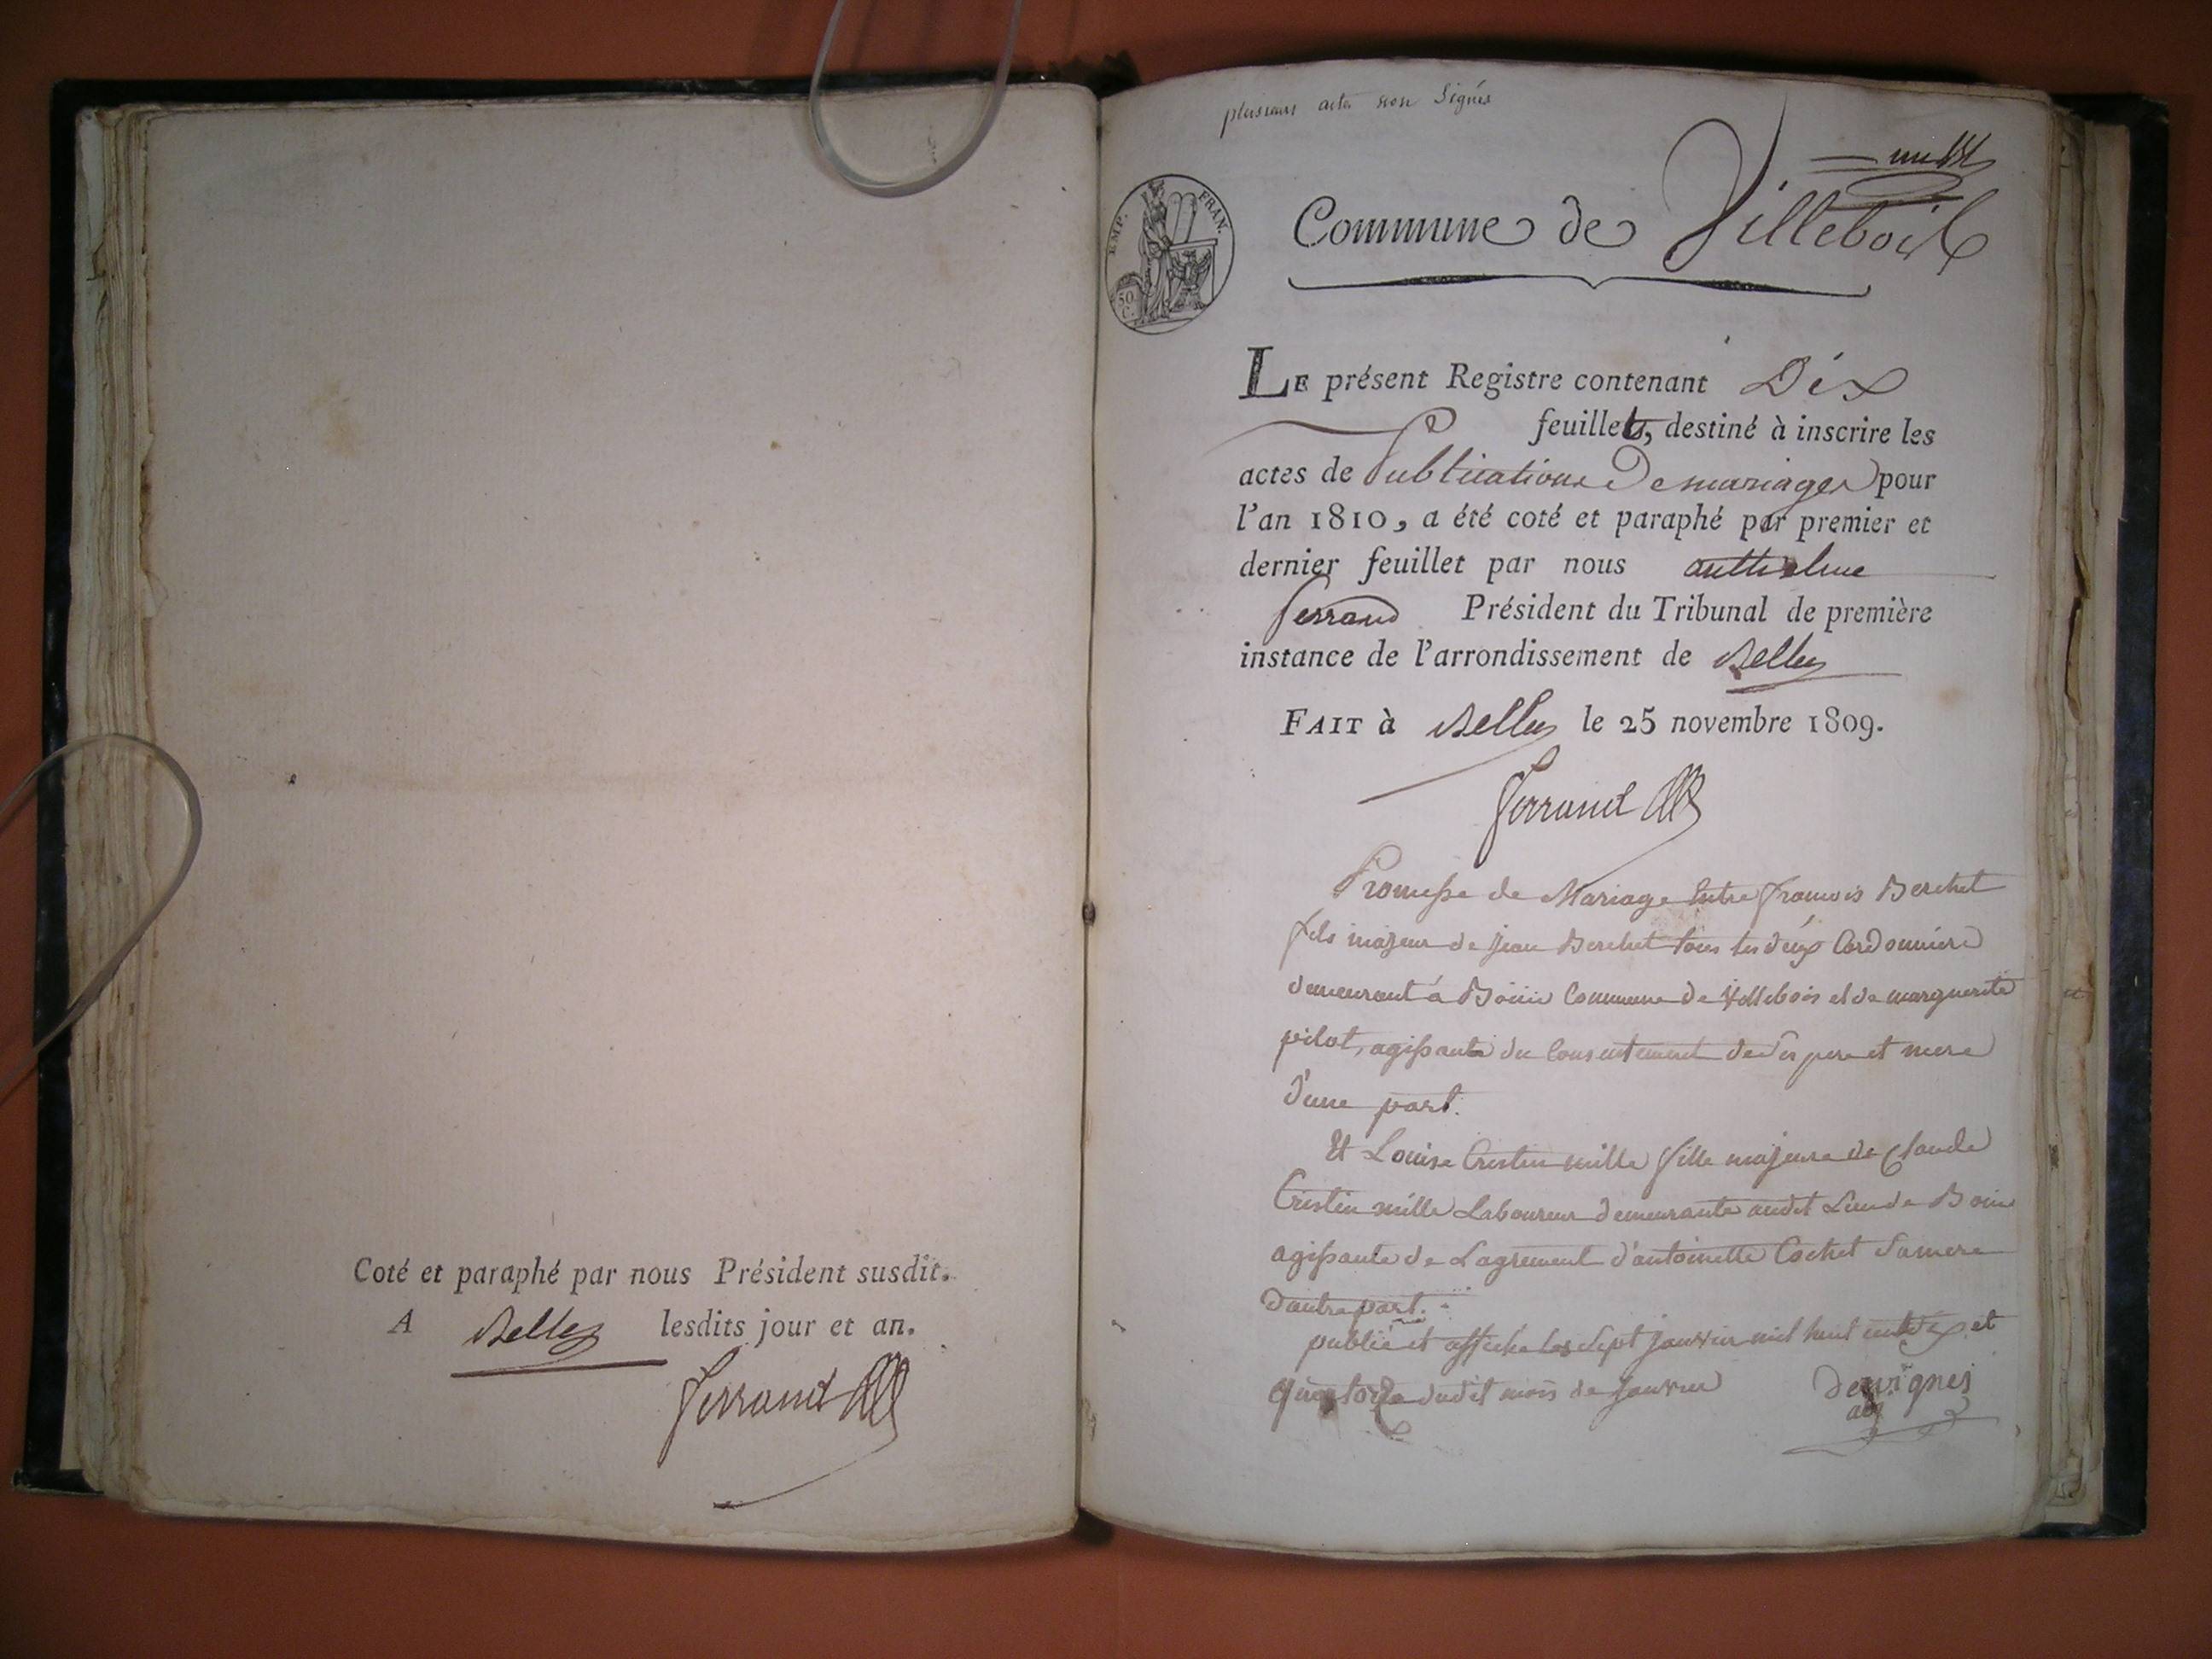 Coté et paraphé par nous Président susdit.
A Belley lesdits jour et an.
Ferrand
plusieurs actes non Signés
un
EMP. FRAN.
50 C.
Commune de Villebois
LE présent Registre contenant Dix
feuillets, destiné à inscrire les
actes de Publications De mariages pour
l'an 1810, a été coté et paraphé par premier et
dernier feuillet par nous anthelme
ferrand Président du Tribunal de première
instance de l'arrondissement de Belley
FAIT à Belley le 25 novembre 1809.
Ferrand
Promesse de Mariage Entre françois Berchet
fils majeur de jean Berchet tous les deux Cordonniers
demeurant à Bouis Commune de Villebois et de marguerite
pilot, agissants du Consentement de Ses pere et mere
d'une part.
Et Louise Cristin mille fille majeure de Claude
Cristin mille Laboureur demeurante audit Lieu de Bouis
agissante de Lagrement d'antoinette Cochet Sa mere
dautre part.
publié et affiché les Sept janvier mil huit cent dix et
quatorze dudit mois de janvier Desvignes
adj